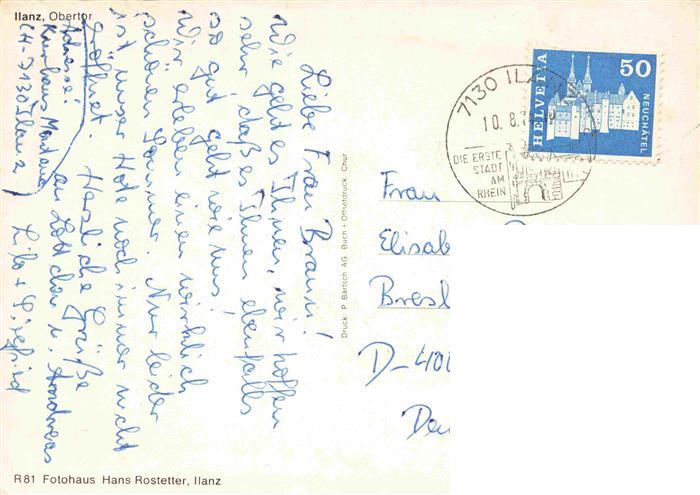 Ilanz, Obertor
Liebe Frau Braun!
Wie geht es Ihnen, wir hoffen
sehr daß es Ihnen ebenfalls
so gut geht wie uns.
Wir erleben einen wirklich
schönen Sommer. Nur leider
ist unser Hote noch immer nicht
eröffnet. Herzliche Grüße
an Lottchen u. Andreas
Lilo + Siegfried
Adresse:
Kurhaus
CH-7130 Ilanz
Druck: P. Bärtsch AG Buch + Offsetdruck Chur
HELVETIA
50
NEUCHÂTEL
7130 ILANZ
10.8.
DIE ERSTE
STADT
AM
RHEIN
Frau
Elisab
Bresl
D-400
Deu
R81 Fotohaus Hans Rostetter, Ilanz